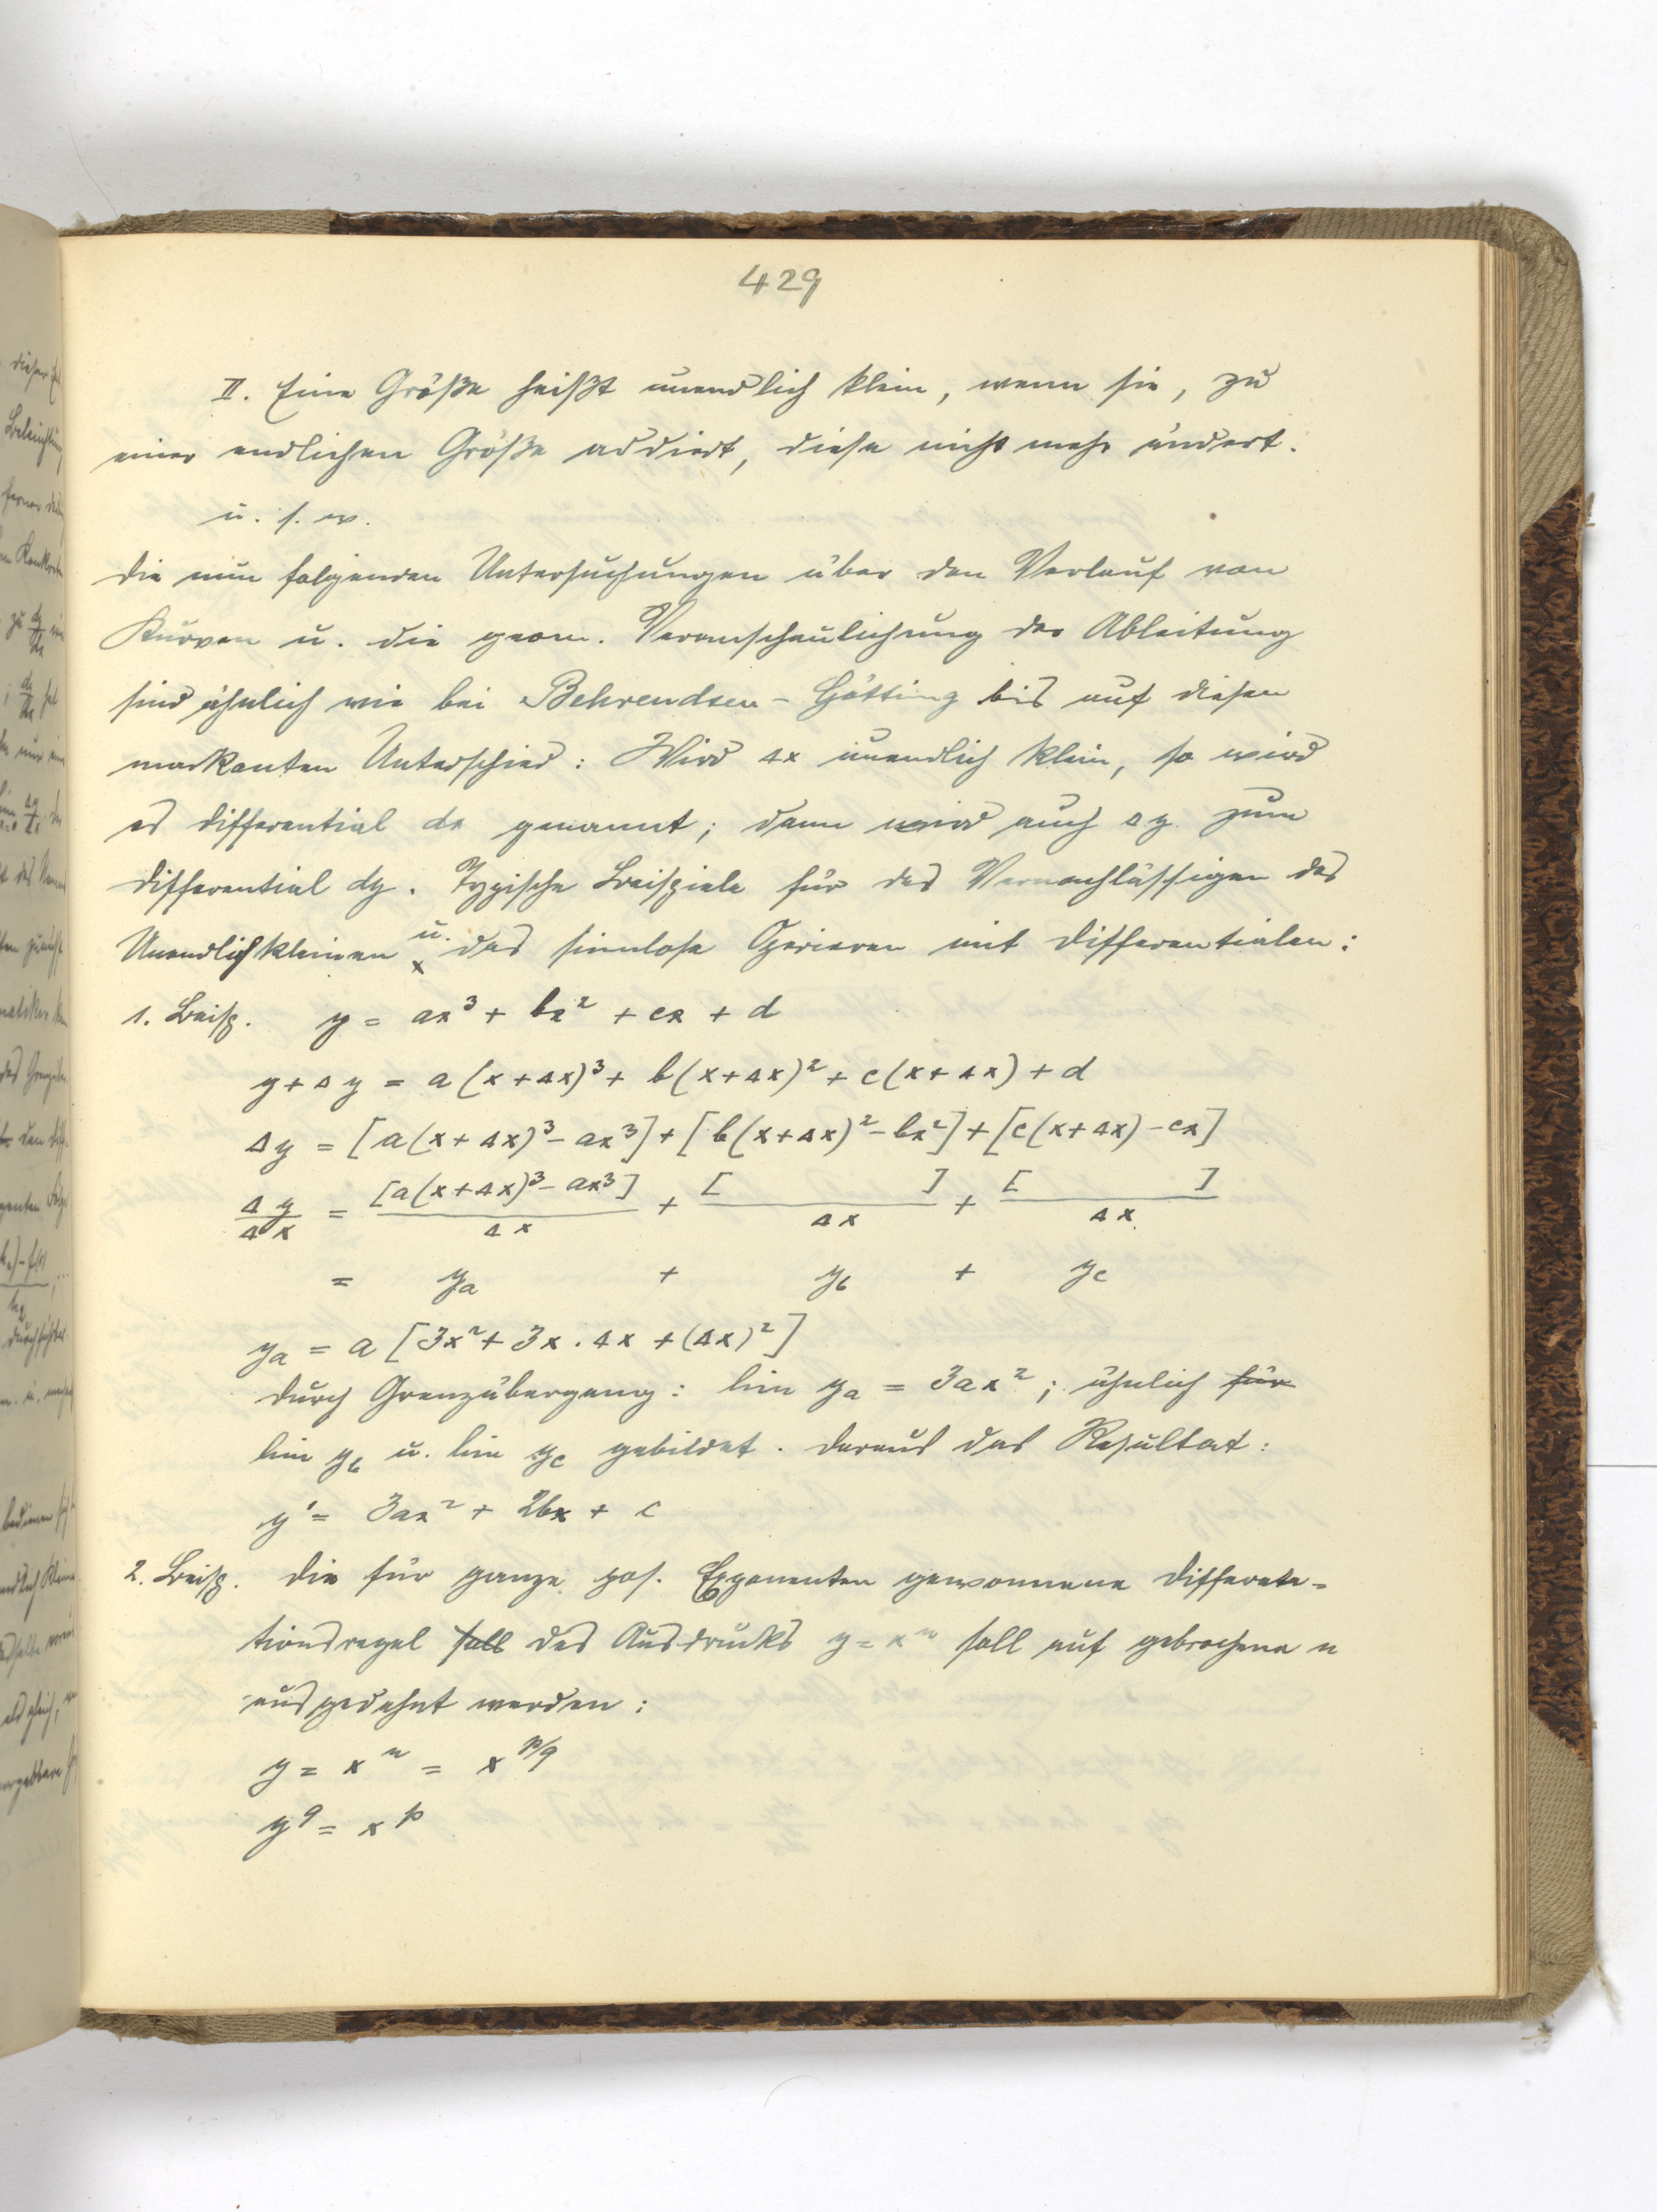 429
II. Eine Größe heißt unendlich klein, wenn sie, zu
einer endlichen Größe addiert, diese nicht mehr ändert.
u. s. w.
Die nun folgenden Untersuchungen über den Verlauf von
Kurven u. die geom. Veranschaulichung der Ableitung
sind ähnlich wie bei Behrendsen-Götting bis auf diesen
markanten Unterschied: Wird Δx unendlich klein, so wird
es Differential dx genannt; dann wird auch Δy zum
Differential dy. Typische Beispiele für das Vernachlässigen des
Unendlichkleinen u. das sinnlose Operieren mit Differentialen:
1. Beisp. y = ax³ + bx² + cx + d
y + Δy = a(x+Δx)³ + b(x+Δx)² + c(x+Δx) + d
Δy = [a(x+Δx)³ - ax³] + [b(x+Δx)² - bx²] + [c(x+Δx) - cx]
Δy/Δx = [a(x+Δx)³ - ax³]/Δx + [ ]/Δx + [ ]/Δx
= y_a + y_b + y_c
y_a = a[3x² + 3x.Δx + (Δx)²]
Durch Grenzübergang: lim y_a = 3ax²; ähnlich für
lim y_b u. lim y_c gebildet. Daraus das Resultat:
y' = 3ax² + 2bx + c
2. Beisp. Die für ganze pos. Exponenten gewonnene Differentia-
tionsregel soll des Ausdrucks y = xⁿ soll auf gebrochene n
ausgedehnt werden:
y = xⁿ = x^p/q
y^q = x^p